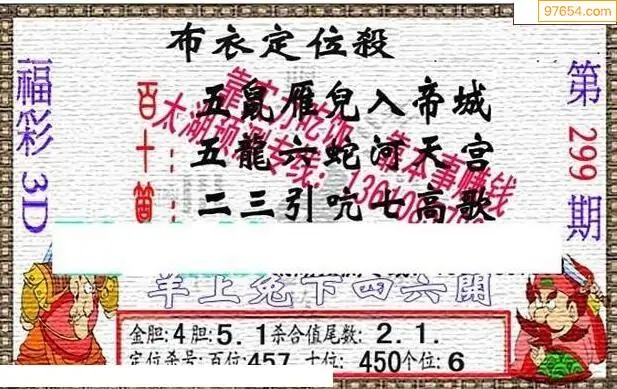 97654.com
布衣定位殺
福彩3D
第299期
百：五鼠雁兒入帝城
十：五龍六蛇河天宫
二三引吭七高歌
羊上兔下四六開
金胆:4胆:5.1杀合值尾数:2.1.
定位杀号:百位:457 十位:450个位:6